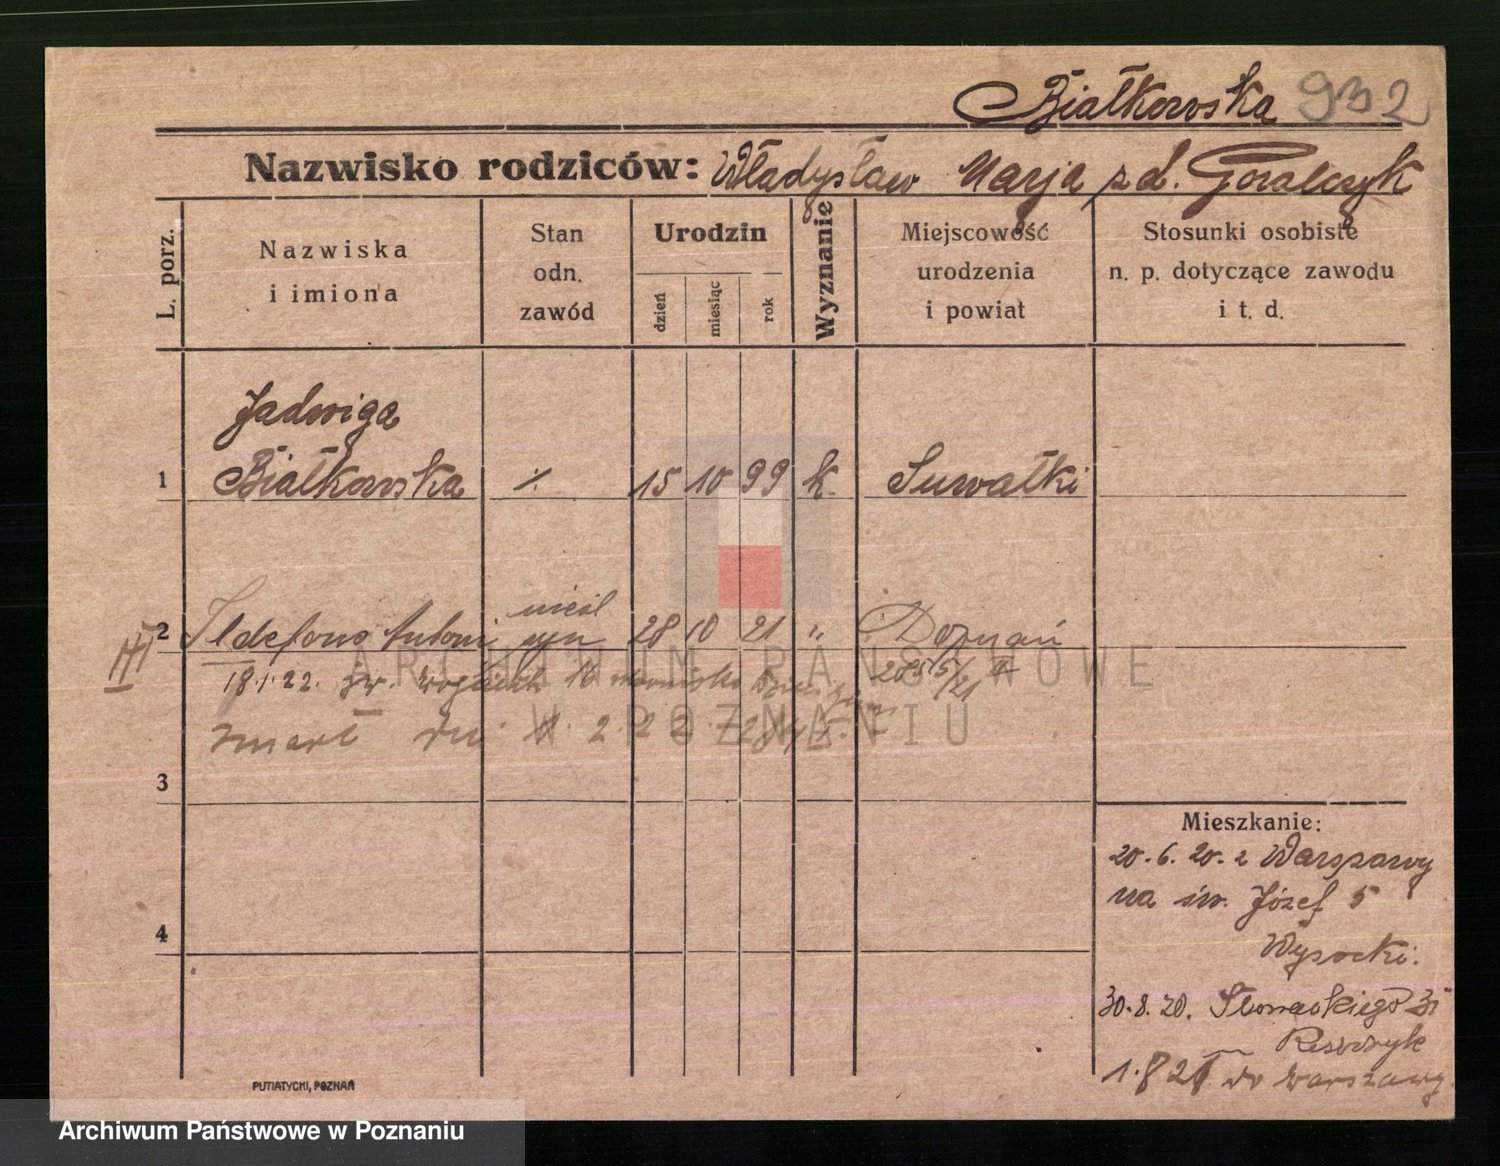 Białkowska 932
Nazwisko rodziców: Władysław Marja z d. Goralczyk
L. porz.
Nazwiska
i imiona
Stan
odn.
zawód
Urodzin
dzień
miesiąc
rok
Wyznanie
Miejscowość
urodzenia
i powiat
Stosunki osobiste
n. p. dotyczące zawodu
i t. d.
Jadwiga
1 Białkowska 15 10 99 k. Suwałki
nieśl
III 2 Ildefons Antoni syn 28 10 21 " Poznań
18.1.22. św. Wojciech
zmarł dn. 2. 22.
3
4
Mieszkanie:
20.6.20. z Warszawy
na św. Józef 5
Wysocki.
30.8.20. Słowackiego 31
1.8 21 do Warszawy
PUTIATYCKI, POZNAŃ
ARCHIWUM PAŃSTWOWE
W POZNANIU
Archiwum Państwowe w Poznaniu